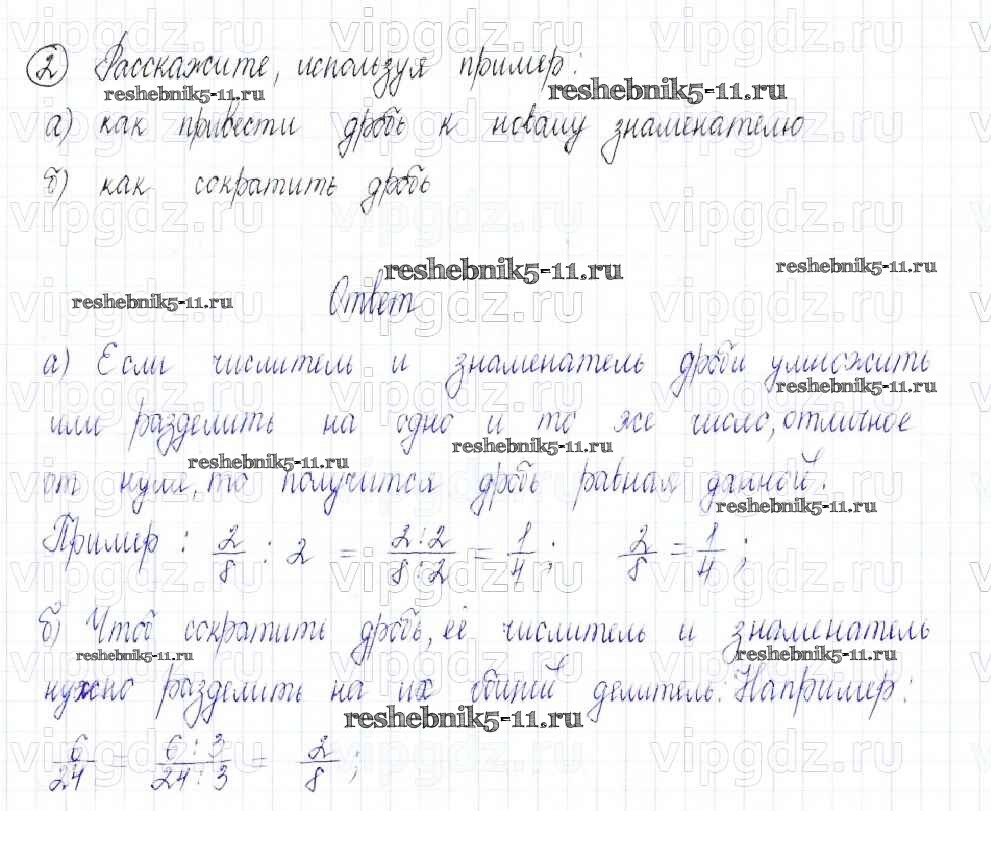 2) Расскажите, используя пример:
reshebnik5-11.ru reshebnik5-11.ru
а) как привести дробь к новому знаменателю
б) как сократить дробь
reshebnik5-11.ru reshebnik5-11.ru
reshebnik5-11.ru Ответ
а) Если числитель и знаменатель дроби умножить
reshebnik5-11.ru
или разделить на одно и то же число, отличное
reshebnik5-11.ru reshebnik5-11.ru
от нуля, то получится дробь равная данной.
reshebnik5-11.ru
Пример: 2/8 : 2 = 2:2/8:2 = 1/4; 2/8 = 1/4;
б) Чтоб сократить дробь, её числитель и знаменатель
reshebnik5-11.ru reshebnik5-11.ru
нужно разделить на их общий делитель. Например:
reshebnik5-11.ru
6/24 = 6:3/24:3 = 2/8;
vipgdz.ru vipgdz.ru vipgdz.ru vipgdz.ru